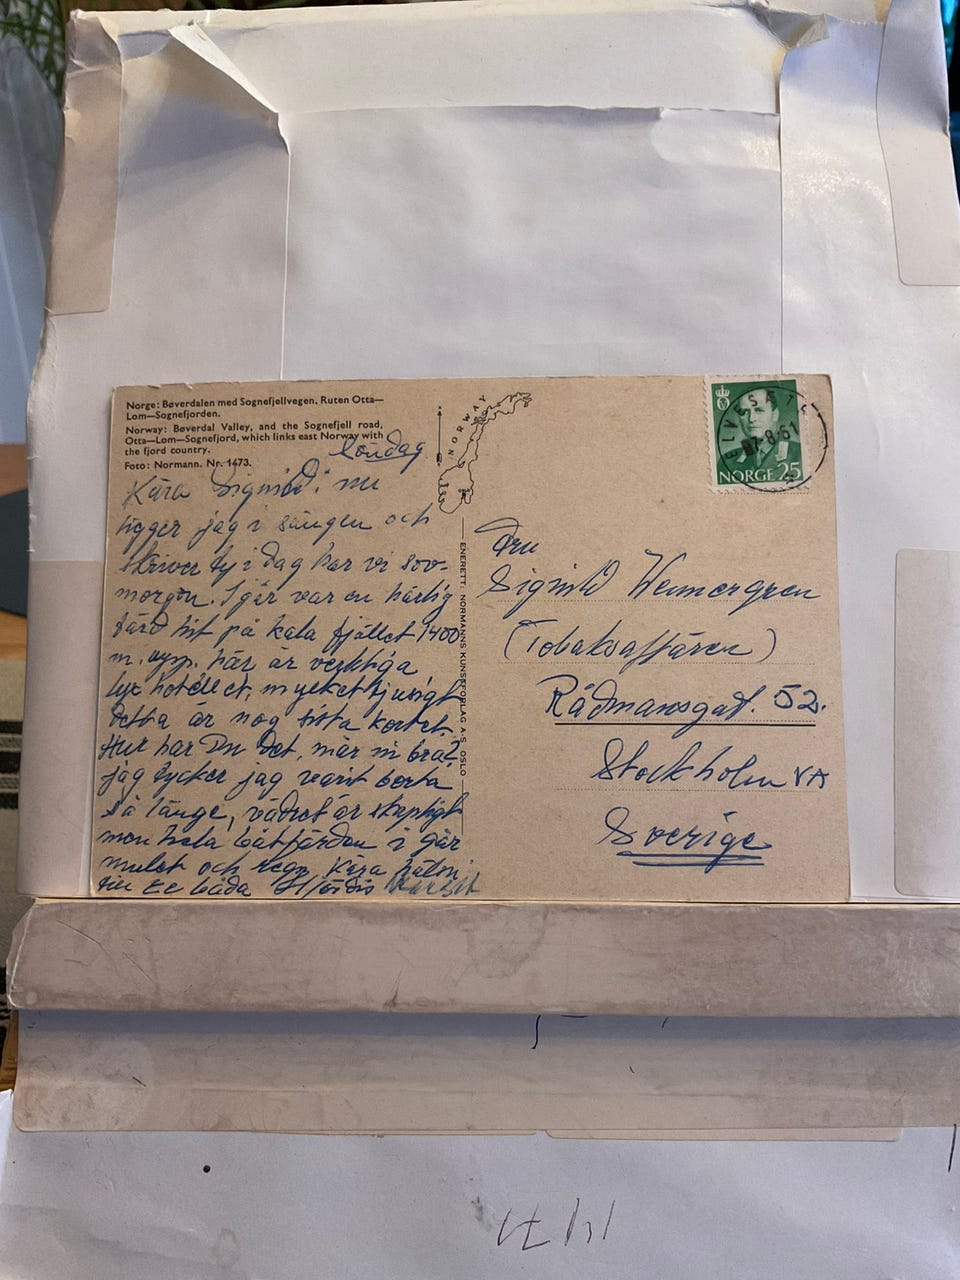 Norge: Bøverdalen med Sognefjellvegen. Ruten Otta—
Lom—Sognefjorden.
Norway: Bøverdal Valley, and the Sognefjell road,
Otta—Lom—Sognefjord, which links east Norway with
the fjord country.
Foto: Normann. Nr. 1473.
Söndag
Kära Sigrid! nu
ligger jag i sängen och
skriver ty i dag har vi sov-
morgon. Igår var en härlig
färd hit på kala fjället 1400
m. här är verkliga
lyx hotellet, mycket tjusigt
detta är nog sista kortet.
Hur har Du det, mår ni bra?
jag tycker jag varit borta
så länge, vädret är skapligt
men hela båtfärden i går
mulet och regn Kära hälsn.
till Er båda Hjördis
NORWAY
ENERETT: NORMANNS KUNSTFORLAG A-S OSLO
ELVESÆTE
7-8-61
NORGE 25
Fru
Sigrid Wennergren
(Tobaksaffären)
Rådmansgat. 52.
Stockholm VA
Sverige